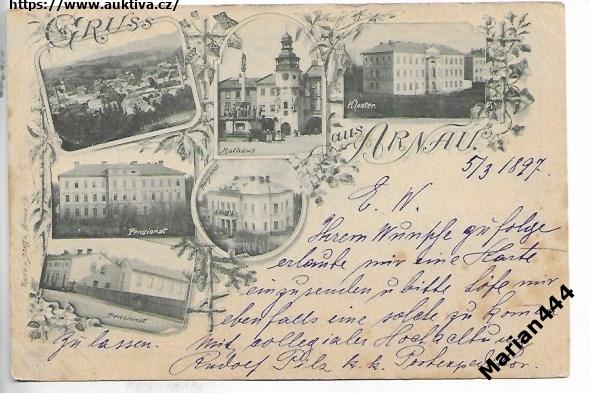 https://www.auktiva.cz/
GRUSS
aus ARNAU.
Rathaus
Kloster
Pensionat
Pensionat
5/3 1897.
E. W.
Ihrem Wunsche zufolge
erlaube mir eine Karte
einzusenden u bitte Höfl mir
ebenfalls eine solche zu kom
zu lassen. Mit collegialer Hochachtung
Rudolf Pilz k. k. Postexpeditor.
Marian444